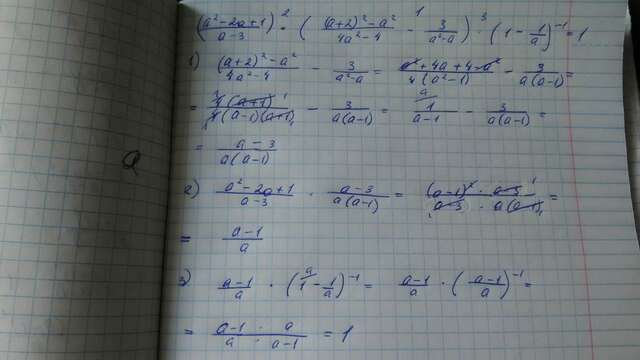 (a²-2a+1 / a-3) ·² ( (a+2)²-a² / 4a²-4 -¹ 3 / a²-a ) ·³ (1 - 1/a)⁻¹ = 1
1) (a+2)²-a² / 4a²-4 - 3 / a²-a = a²+4a+4-a² / 4(a²-1) - 3 / a(a-1) =
= 4(a+1) / 4(a-1)(a+1) - 3 / a(a-1) = 1 / a-1 - 3 / a(a-1) =
= a-3 / a(a-1)
a
2) a²-2a+1 / a-3 · a-3 / a(a-1) = (a-1)² · a-3 / a-3 · a(a-1) =
= a-1 / a
3) a-1 / a · (1 - 1/a)⁻¹ = a-1 / a · (a-1 / a)⁻¹ =
= a-1 · a / a · a-1 = 1